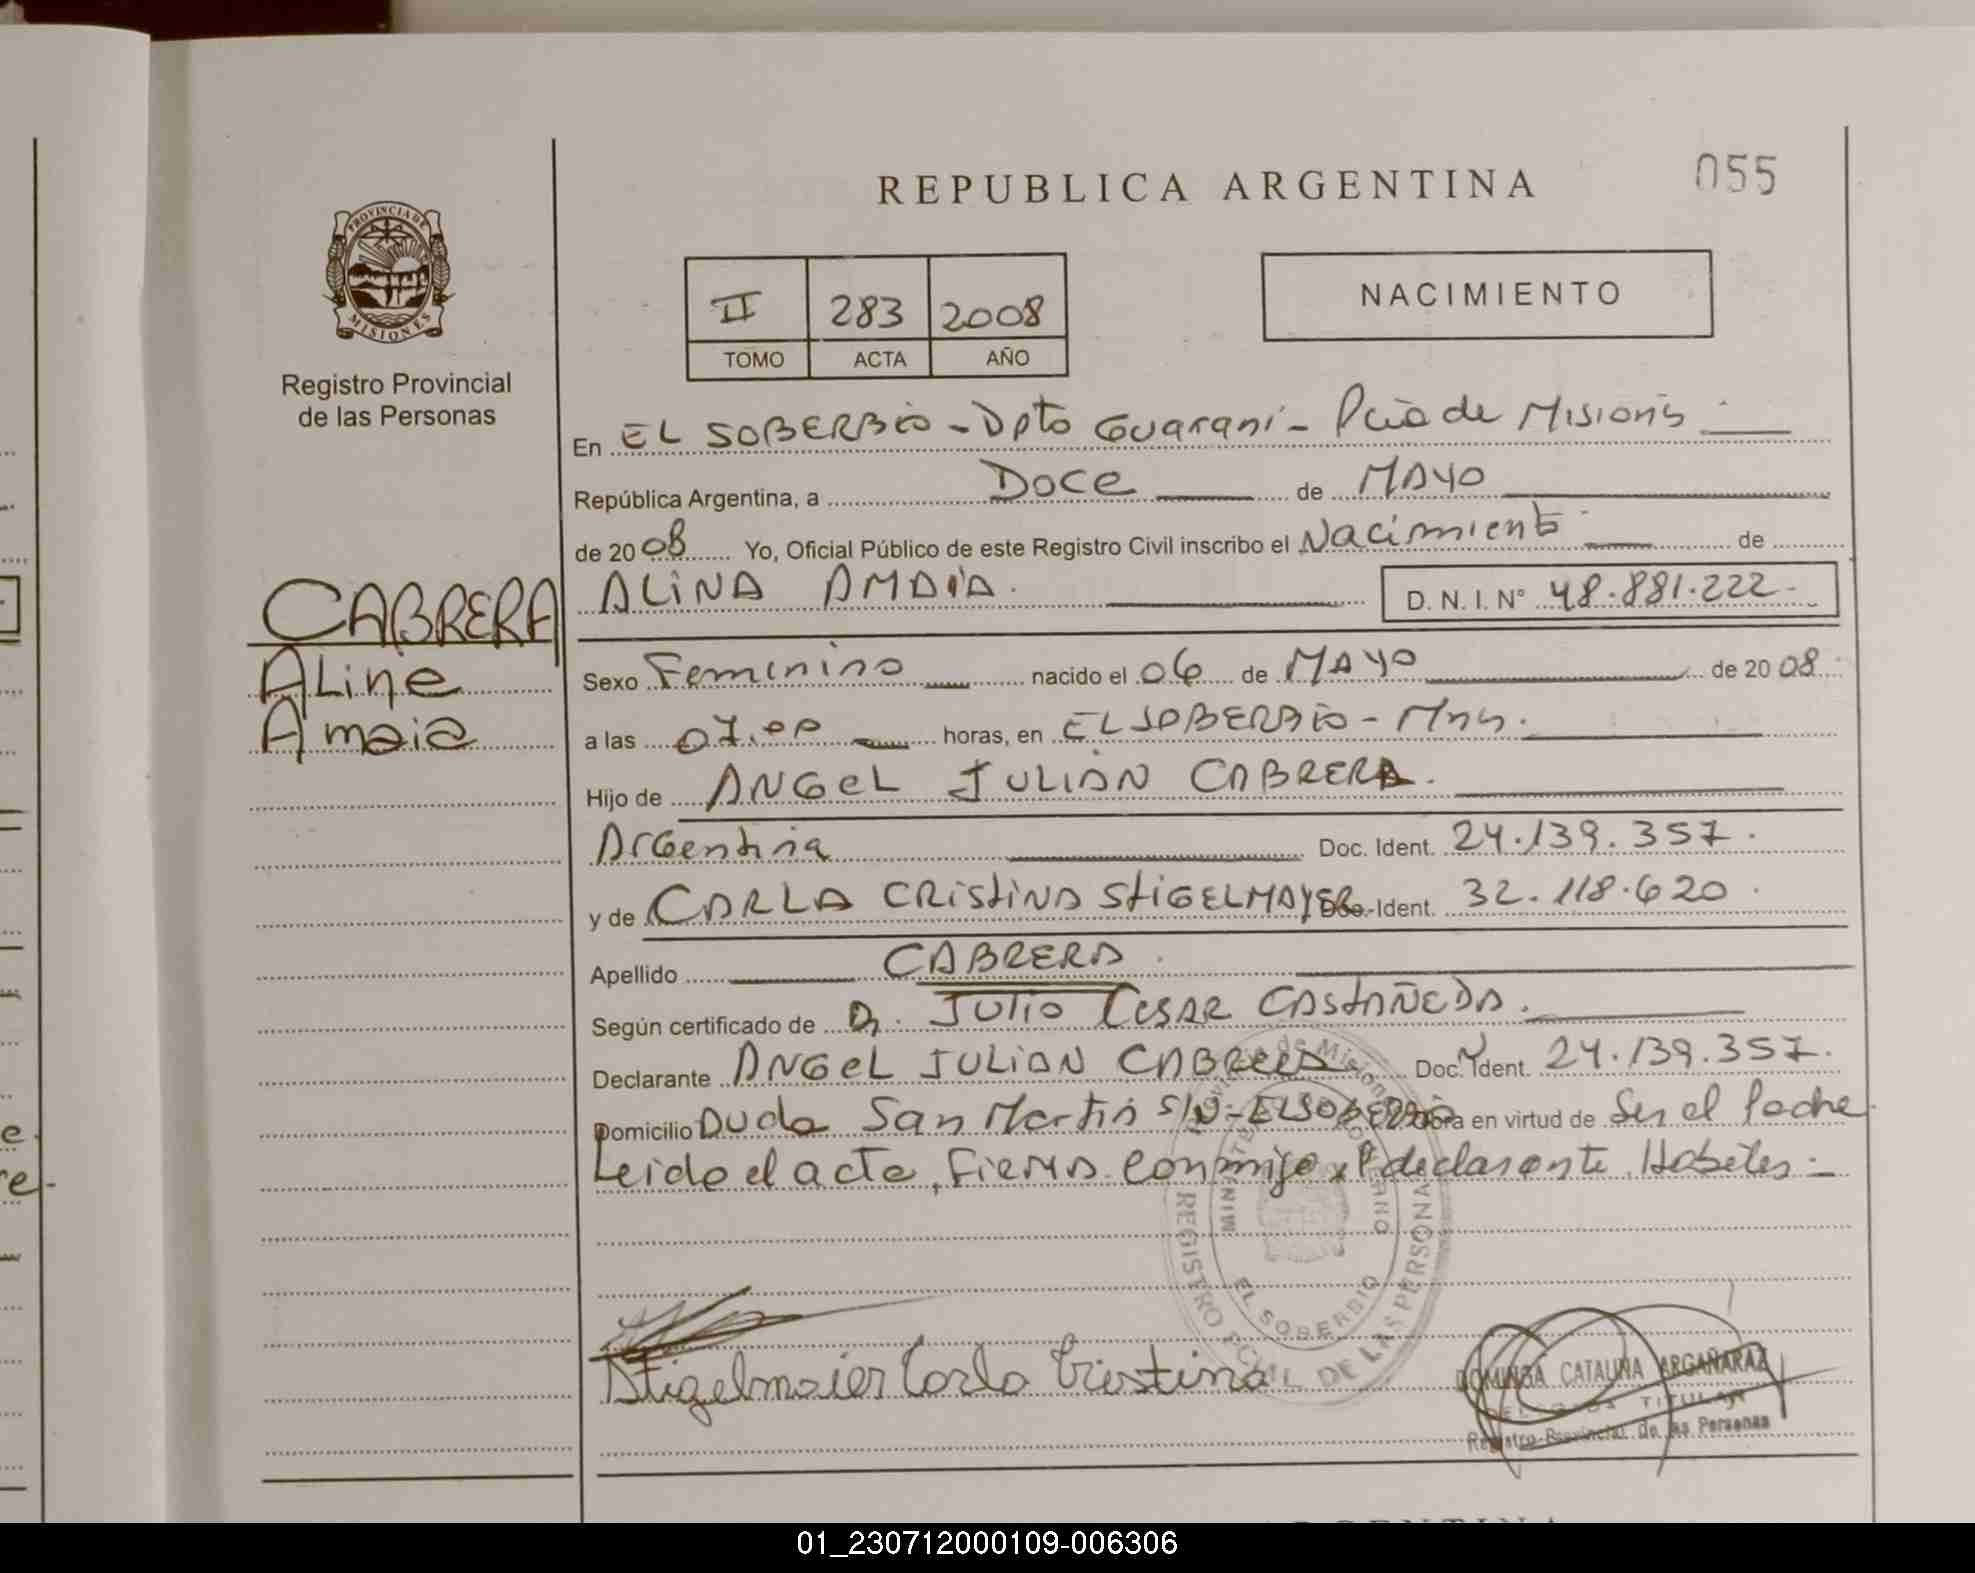 REPUBLICA ARGENTINA
055
PROVINCIA DE
MISIONES
Registro Provincial
de las Personas
II 283 2008
TOMO ACTA AÑO
NACIMIENTO
En EL SOBERBIO - Dpto Guaraní - Pcia de Misiones
República Argentina, a DOCE de MAYO
de 2008 Yo, Oficial Público de este Registro Civil inscribo el Nacimiento de
ALINA AMAIA.
D. N. I. N° 48.881.222-
CABRERA
Aline
Amaia
Sexo Femenino nacido el 06 de MAYO de 2008
a las 07.00 horas, en EL SOBERBIO - Mns.
Hijo de ANGEL JULIAN CABRERA.
Argentina Doc. Ident. 24.139.357.
y de CARLA CRISTINA STIGELMAYER Doc. Ident. 32.118.620.
Apellido CABRERA.
Según certificado de Dr. JULIO CESAR CASTAÑEDA.
Declarante ANGEL JULIAN CABRERA Doc. Ident. 24.139.357.
Domicilio Avda San Martin S/N - EL SOBERBIO Obra en virtud de Ser el Padre
Leido el acta, FIRMA conmigo el declarante. Habiles -
Provincia de Misiones
MINISTERIO GOBIERNO
EL SOBERBIO
REGISTRO PCIAL. DE LAS PERSONAS
Stigelmaier Carla Cristina
DOMINGA CATALINA ARGAÑARAZ
DELEGADA TITULAR
Registro Provincial de las Personas
01_230712000109-006306